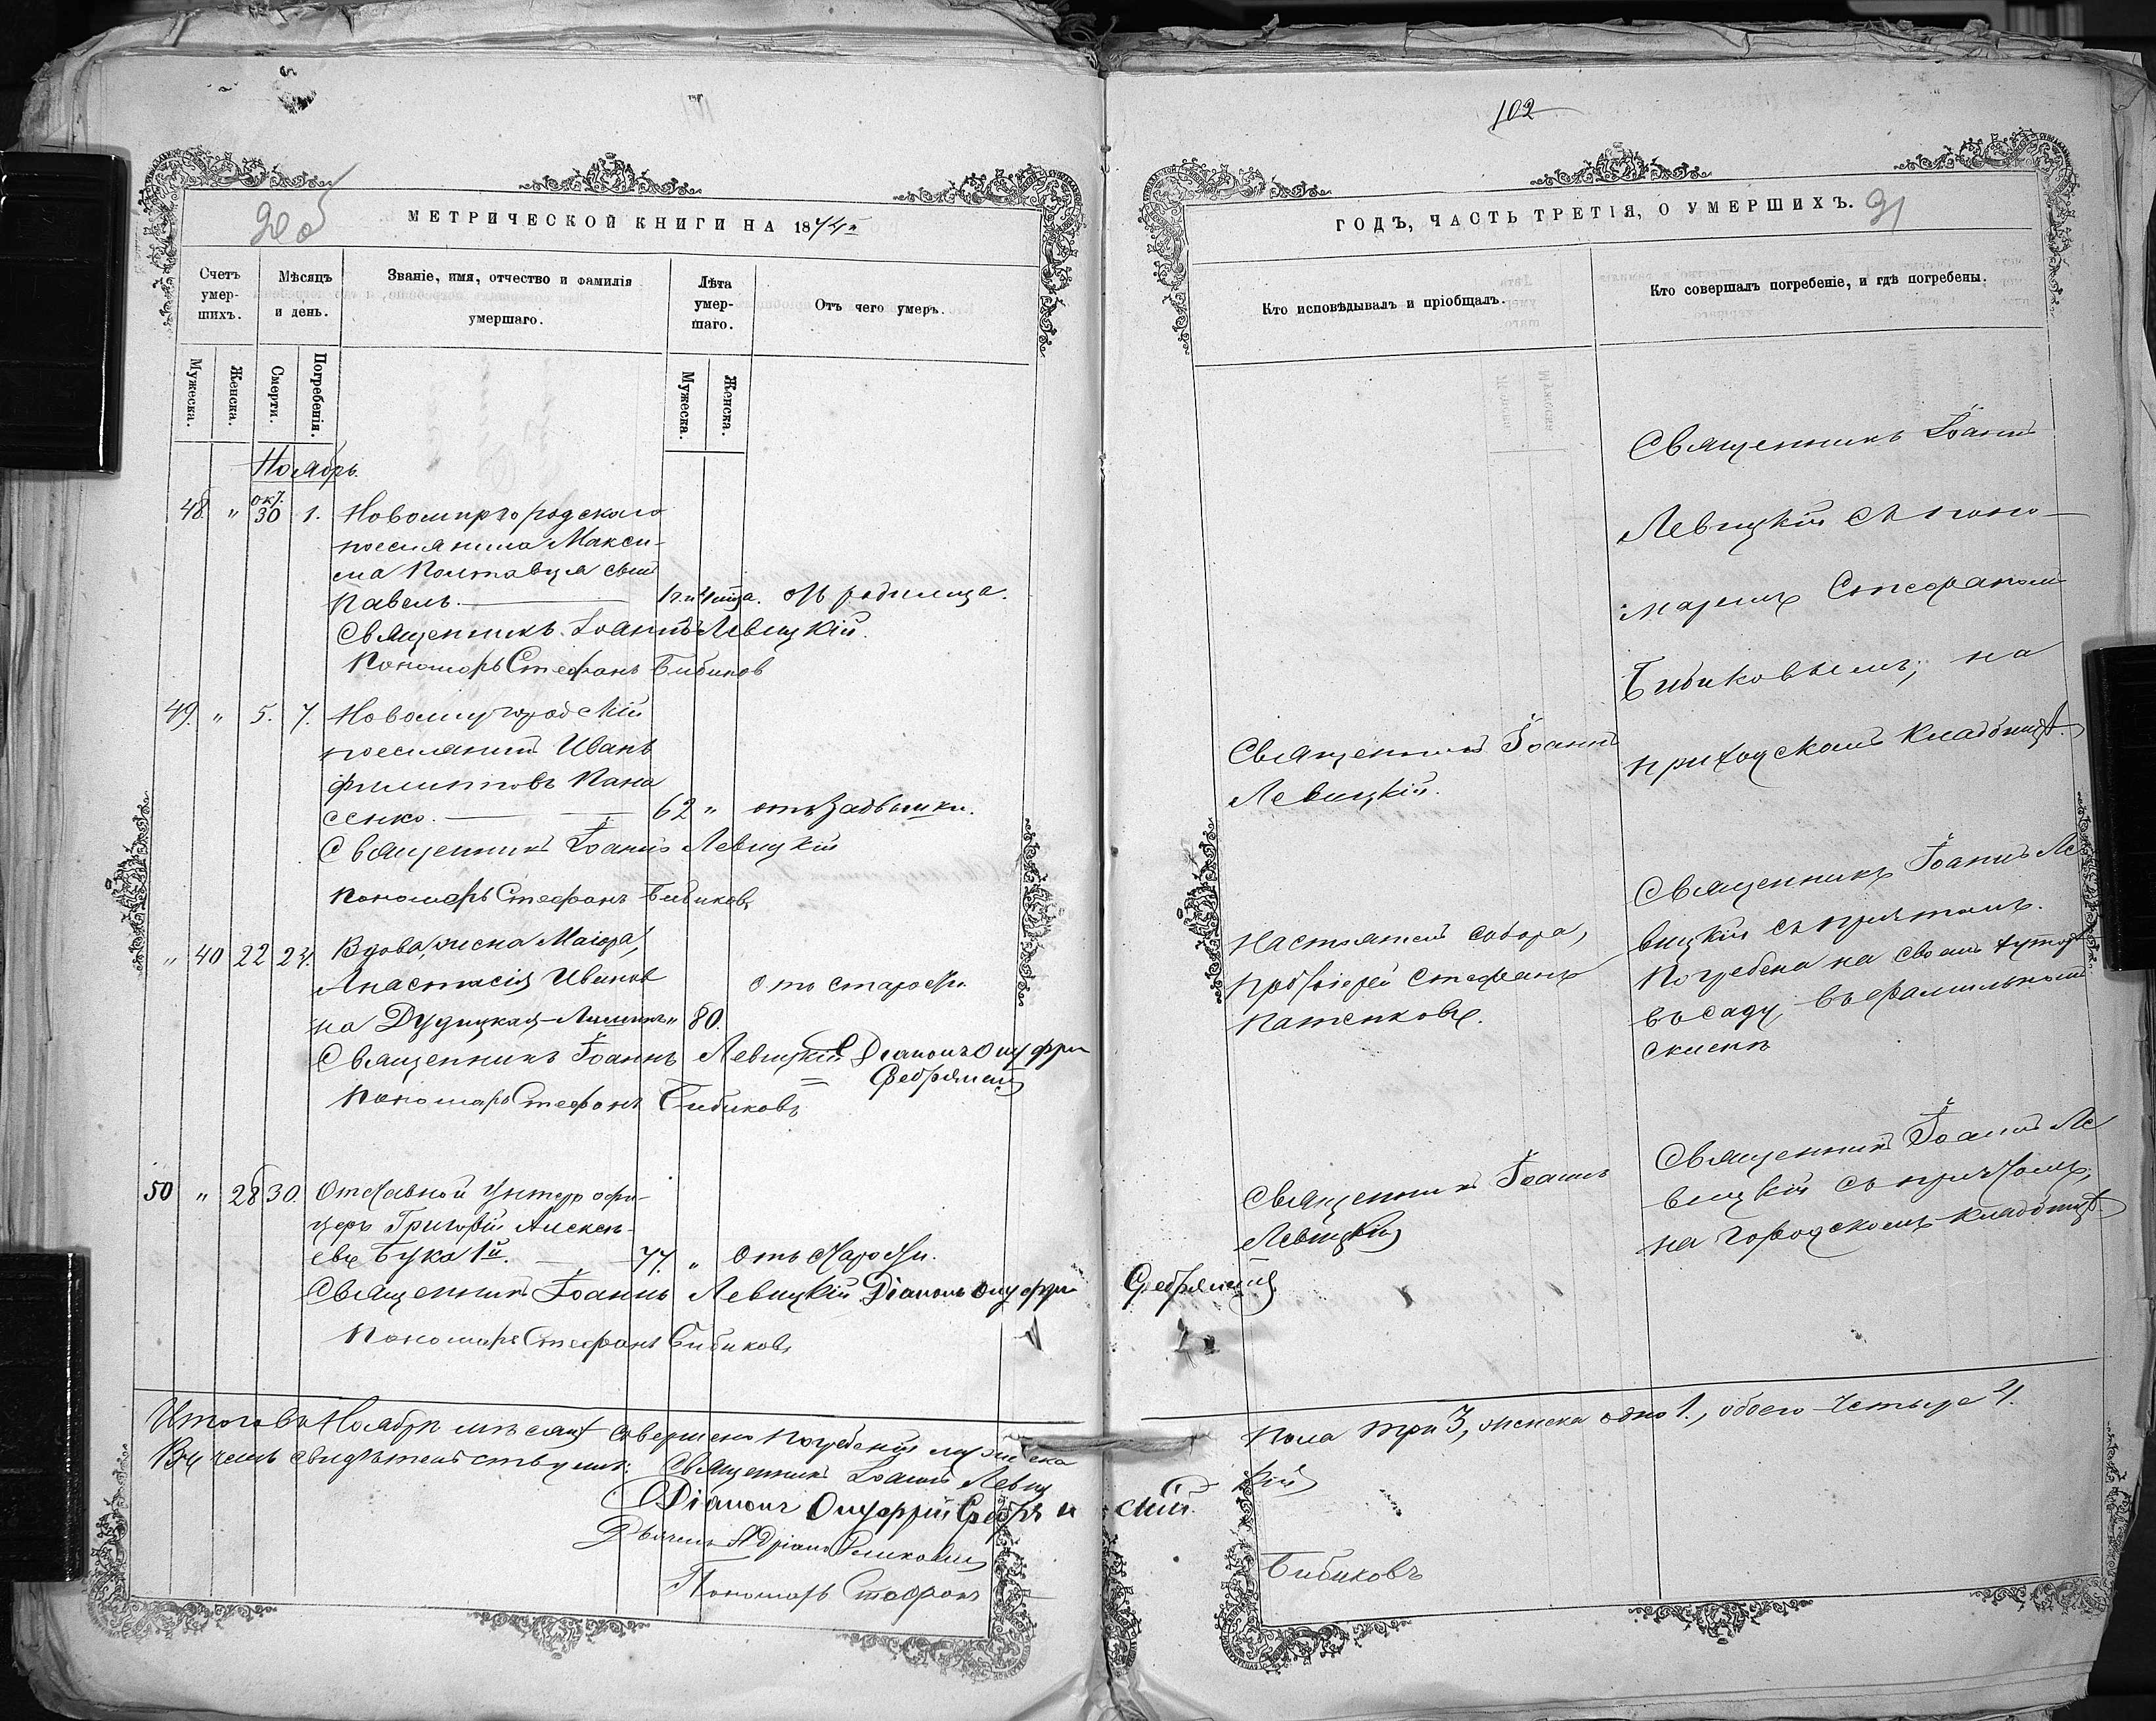 102
90 об
МЕТРИЧЕСКОЙ КНИГИ НА 1874й
Счетъ умер-шихъ.
Мѣсяцъ и день.
Званіе, имя, отчество и фамилія умершаго.
Лѣта умер-шаго.
Отъ чего умеръ.
Мужеска.
Женска.
Смерти.
Погребенія.
Мужеска.
Женска.
Ноябрь.
48 " окт. 30 1. Новомиргородскаго
поселянина Макси-
ма Полтавца сынъ
Павелъ. отъ родимца.
Священникъ Іоаннъ Левицкій.
Пономарь Стефанъ Бибиковъ
49. " 5. 7. Новомиргородскій
поселянинъ Иванъ
Филипповъ Пана
сенко. 62 " отъ задышки.
Священникъ Іоаннъ Левицкій
Пономарь Стефанъ Бибиковъ
" 40 22 24. Вдова, жена Маіора,
Анастасія Иванов
на Дудицкая- " 80. отъ старости.
Священникъ Іоаннъ Левицкій Діаконъ Онуфри
Пономарь Стефанъ Бибиковъ
50 " 28 30. Отставной Унтеръ офи-
церъ Григорій Алексѣ-
евъ Бука 1й. 77. " Отъ старости.
Священникъ Іоаннъ Левицкій Діаконъ Онуфри
Пономарь Стефанъ Бибиковъ
Итого въ Ноябрѣ мѣсяцѣ совершено погребенія мужеска
Въ чемъ свидѣтельствуемъ: Священникъ Іоаннъ Левиц
Діаконъ Онуфрій
Пономарь Стефанъ
ГОДЪ, ЧАСТЬ ТРЕТІЯ, О УМЕРШИХЪ. 91
Кто исповѣдывалъ и пріобщалъ.
Кто совершалъ погребеніе, и гдѣ погребены.
Священникъ Іоаннъ
Левицкій съ поно-
маремъ Стефаномъ
Бибиковымъ, на
приходскомъ кладбищѣ.
Священникъ Іоаннъ
Левицкій.
Настоятель собора,
Протоіерей Стефанъ
Священникъ Іоаннъ Ле
вицкій съ причтомъ.
Погребена на своемъ хуторѣ
въ саду, въ фамильномъ
склепѣ
Священникъ Іоаннъ
Левицкій
Священникъ Іоаннъ Ле
вицкій съ причтомъ,
на городскомъ кладбищѣ.
пола три 3, женска одно 1., обоего четыре 4.
кій
скій.
Бибиковъ